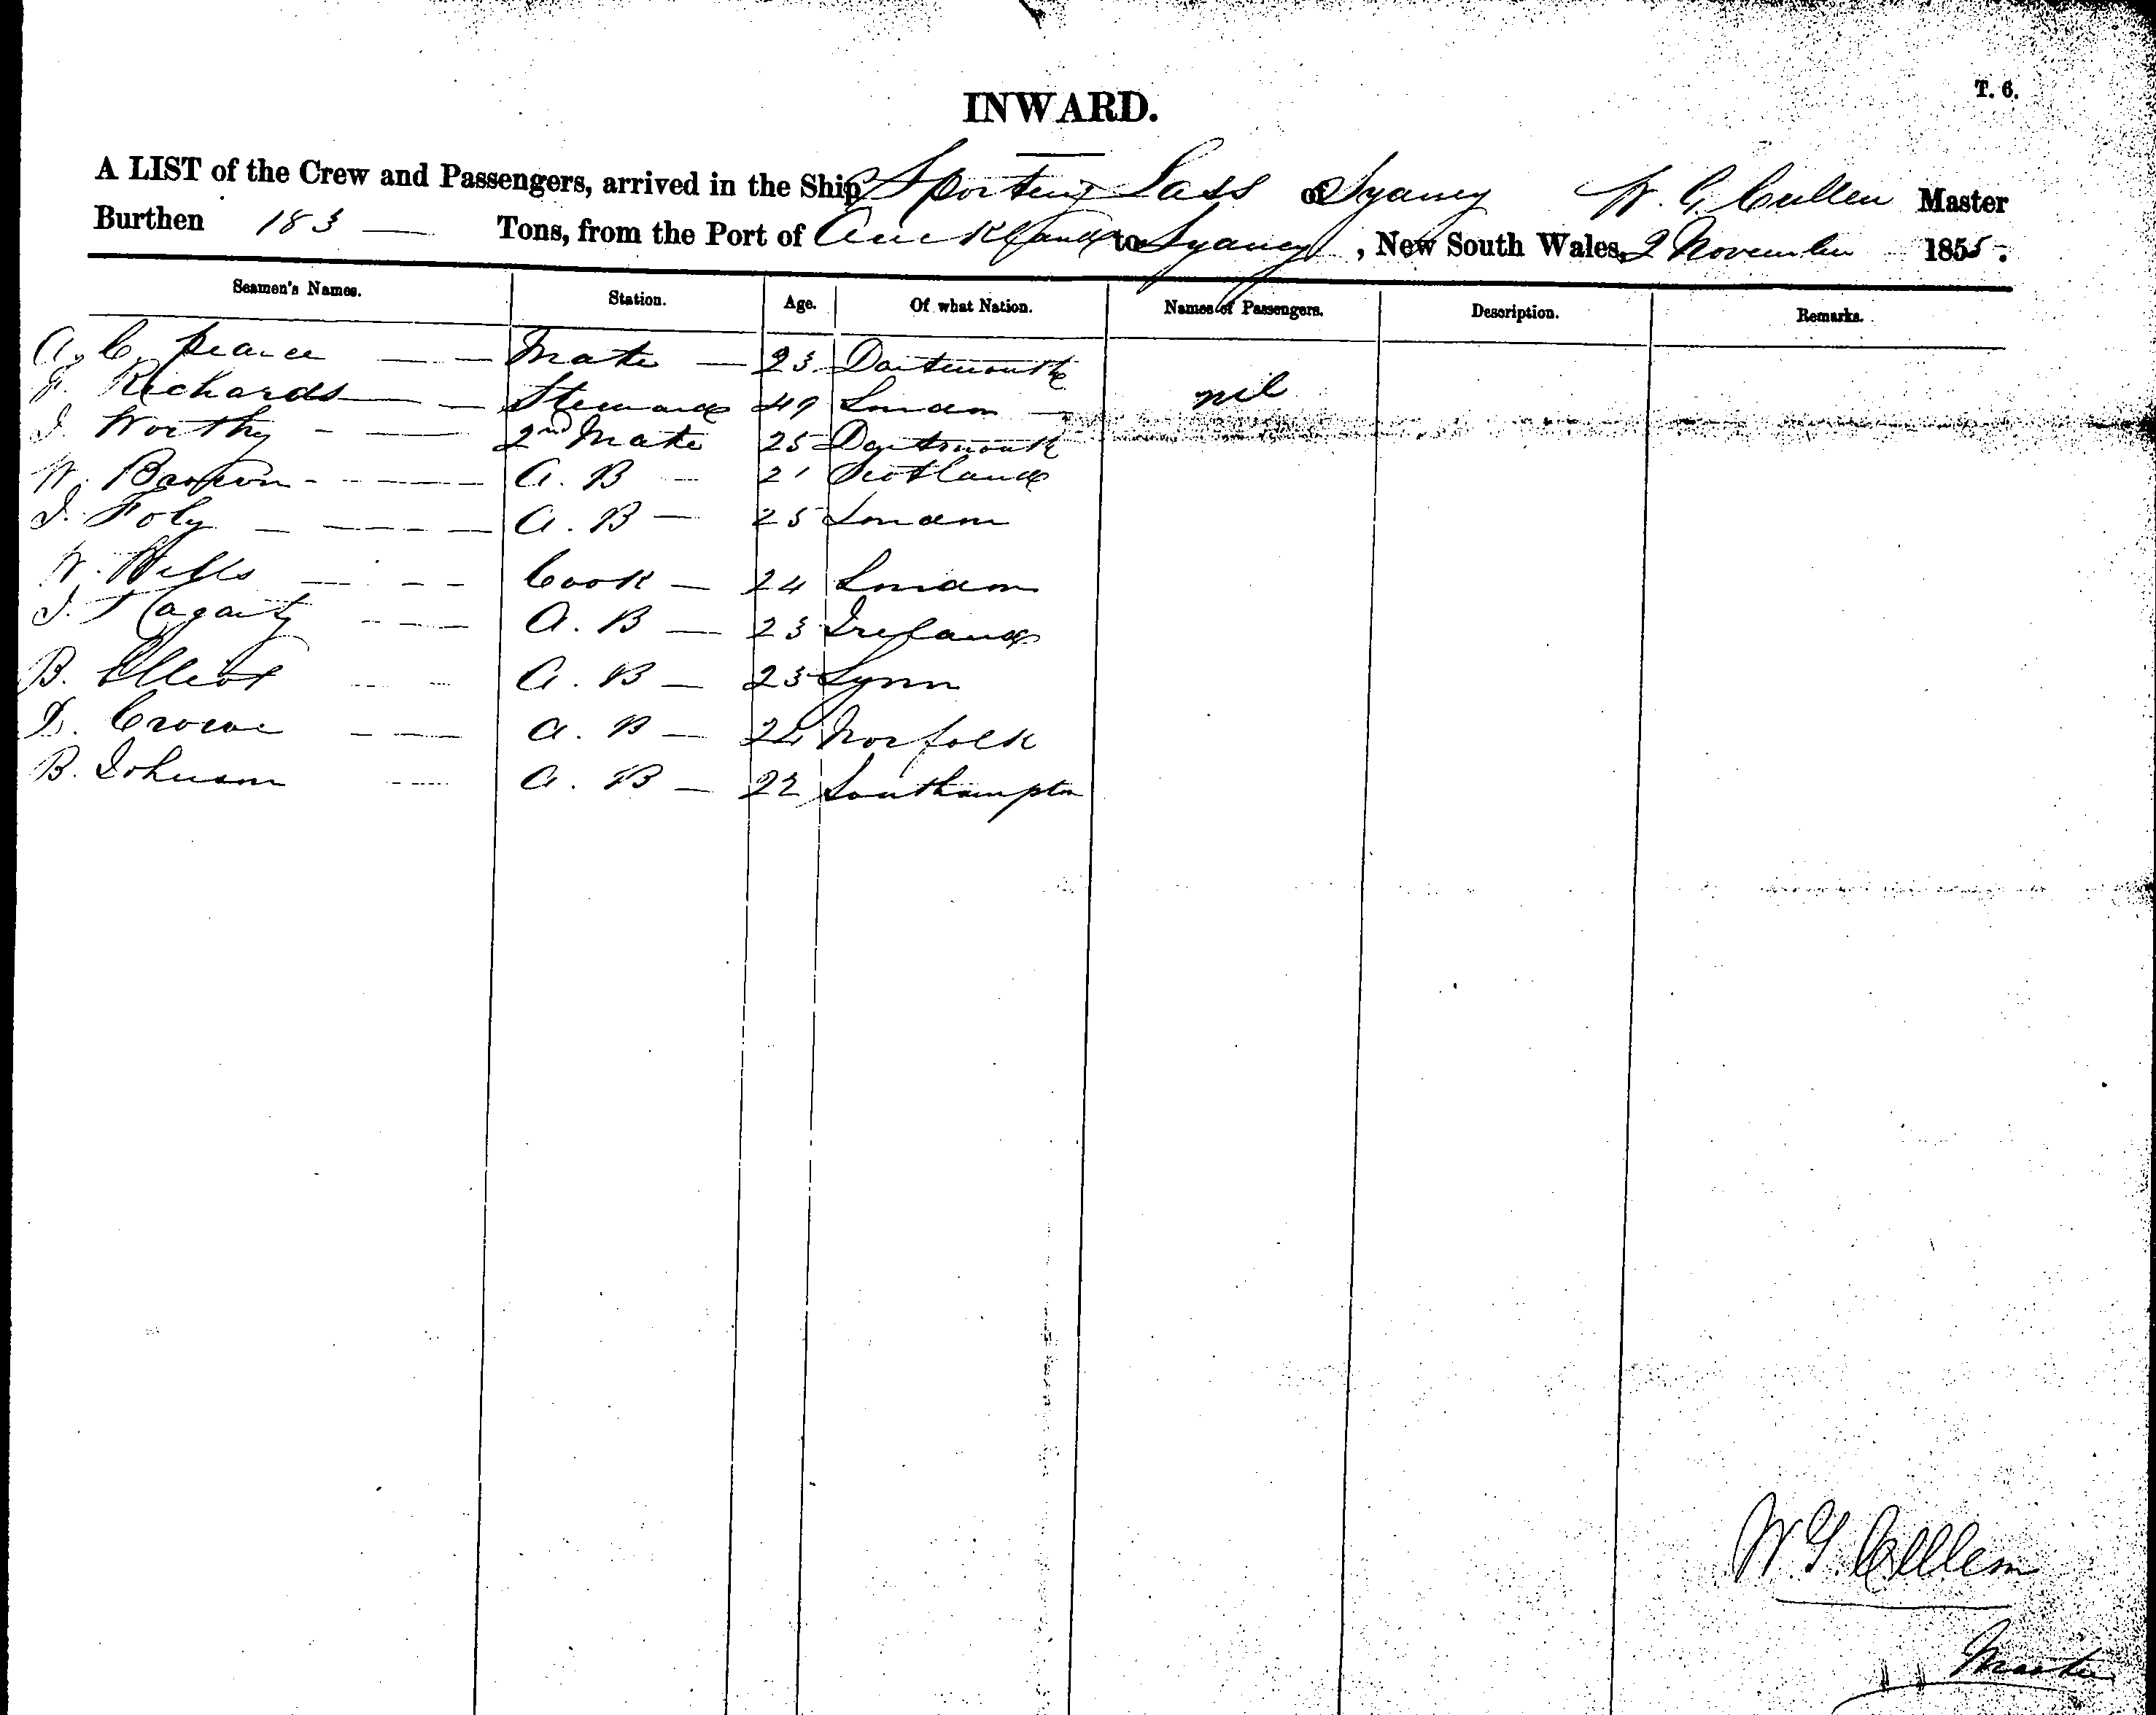 T. 6.
INWARD.
A LIST of the Crew and Passengers, arrived in the Ship Sporting Lass of Sydney W. G. Cullen Master
Burthen 183 — Tons, from the Port of Auckland to Sydney, New South Wales, 2 November 1855.
Seamen's Names. Station. Age. Of what Nation. Names of Passengers. Description. Remarks.
A. C. Pearce — — Mate — 23 Dartmouth
Richards — — Steward 49 London — nil
J. Worthy - — 2nd Mate 25 Dartmouth
W. Brown - - — — A. B — 21 Scotland
J. Foly — — — — A. B — 25 London
W. Wells — - — — Cook — 24 London
J. Hagarty - - — A. B — 23 Ireland
B. Elliot - - — A. B — 23 Lynn
D. Crowe — — — A. B — 24 Norfolk
B. Johnson - - — A. B — 22 Southampton
W. G. Cullen
Master